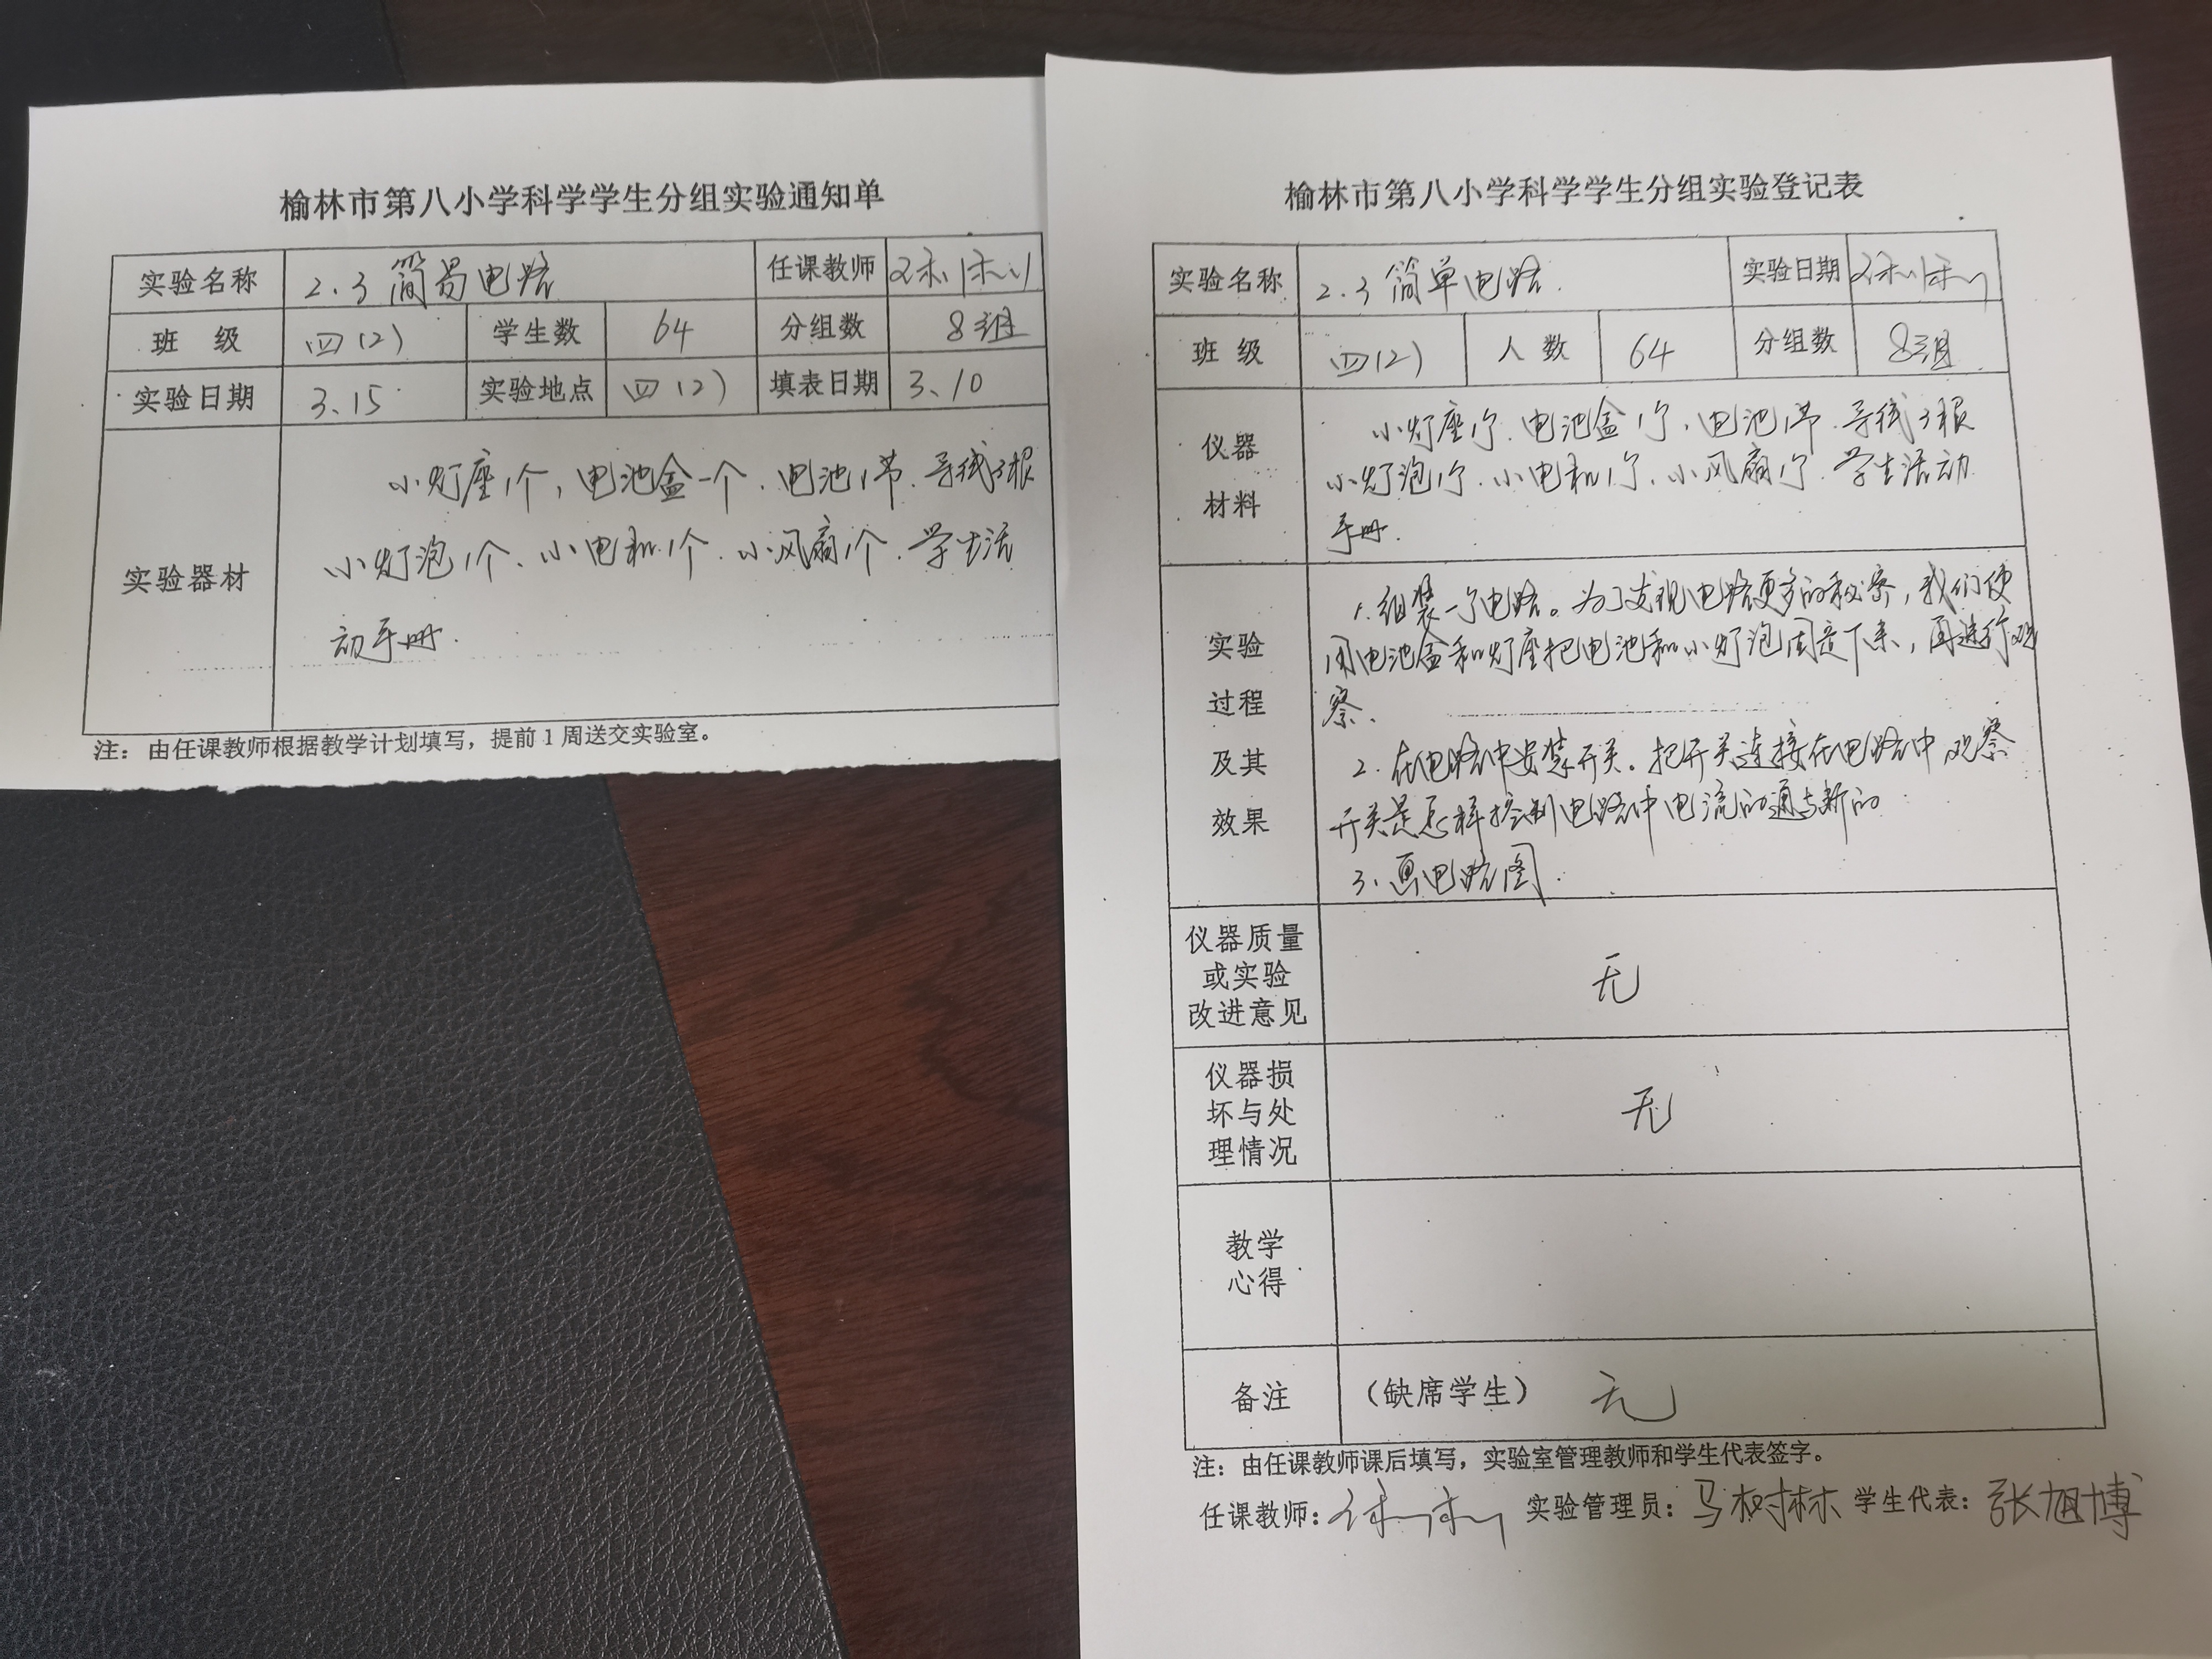 榆林市第八小学科学学生分组实验通知单
实验名称 2.3 简易电路 任课教师
班 级 四(2) 学生数 64 分组数 8组
实验日期 3.15 实验地点 四(2) 填表日期 3.10
实验器材
小灯座1个,电池盒一个、电池1节、导线3根
小灯泡1个、小电机1个、小风扇1个、学生活
动手册.
注:由任课教师根据教学计划填写,提前1周送交实验室。
榆林市第八小学科学学生分组实验登记表
实验名称 2.3 简单电路. 实验日期
班 级 四(2) 人 数 64 分组数 8组
仪器
材料
小灯座1个、电池盒1个、电池1节、导线3根
小灯泡1个、小电机1个、小风扇1个、学生活动
手册.
实验
过程
及其
效果
1.组装一个电路。为了发现电路更多的秘密,我们使
用电池盒和灯座把电池和小灯泡固定下来,再进行观
察、
2.在电路中安装开关。把开关连接在电路中观察
开关是怎样控制电路中电流的通与断的
3、画电路图.
仪器质量
或实验
改进意见
无
仪器损
坏与处
理情况
无
教学
心得
备注 (缺席学生) 无
注:由任课教师课后填写,实验室管理教师和学生代表签字。
任课教师: 实验管理员:马树林 学生代表:张旭博